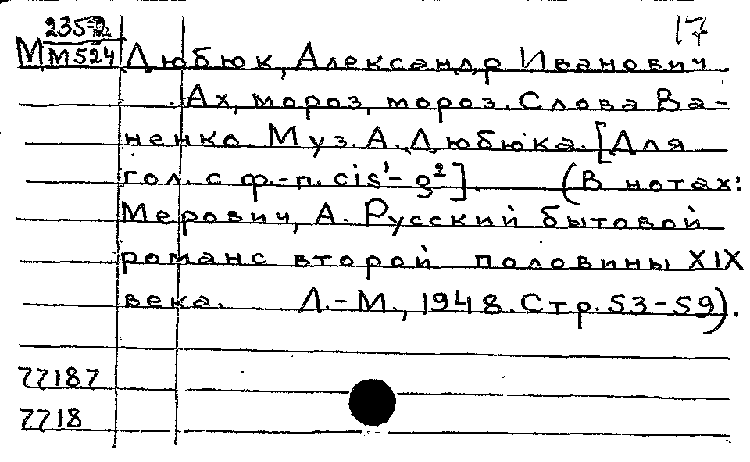 17
235-2
М М524 Дюбюк, Александр Иванович
Ах, мороз, мороз. Слова Ва-
ненко. Муз. А. Дюбюка. [Для
гол. с ф.-п. cis¹-g²] (В нотах:
Мерович, А. Русский бытовой
романс второй половины XIX
века. Л.-М., 1948. Стр. 53-59).
77187
7718